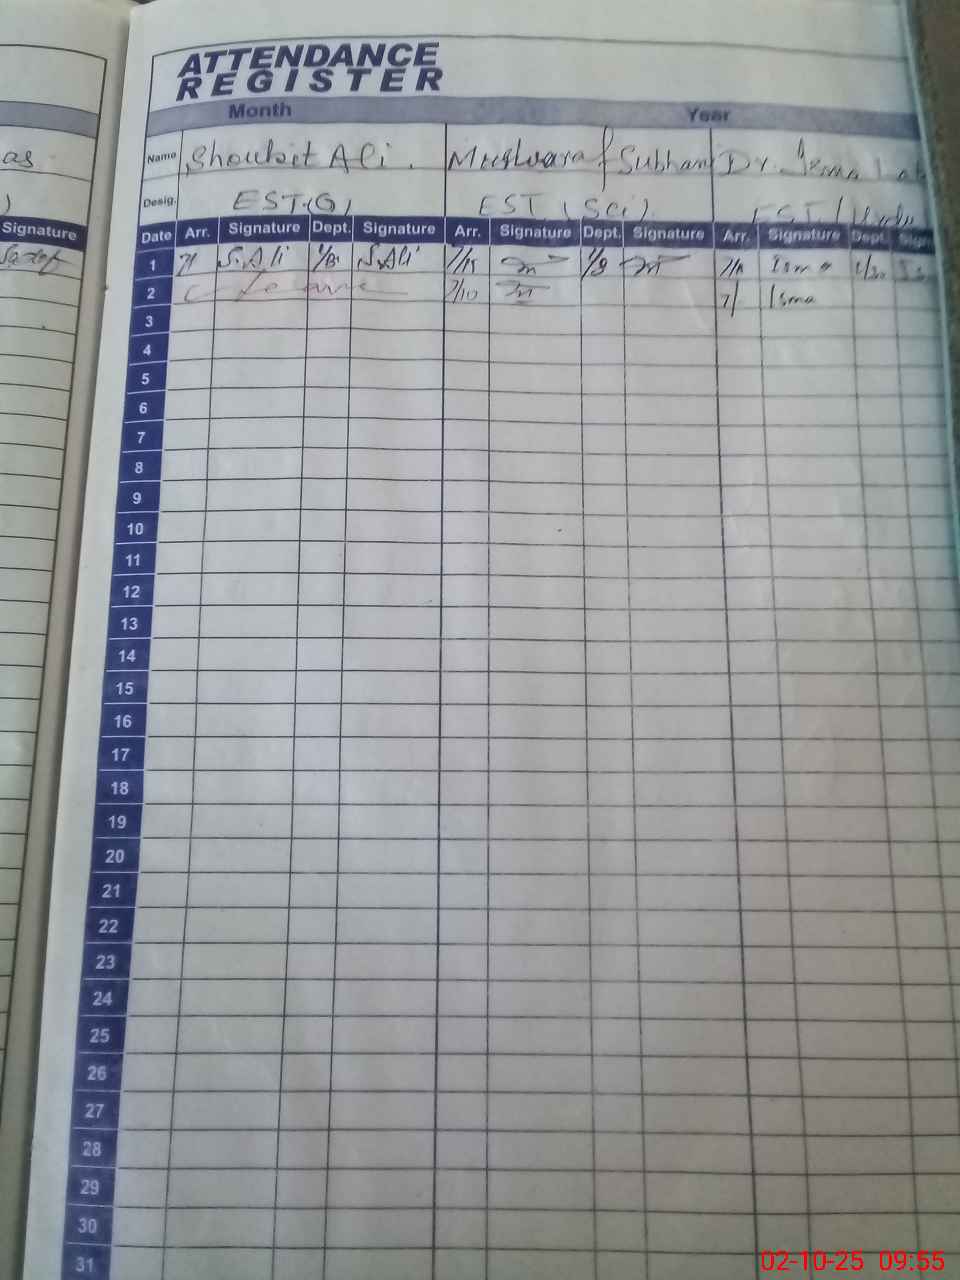 ATTENDANCE
REGISTER
Month Year
as Name Shoukat Ali. Subhan Dr.
) Desig. EST(G) EST (Sci) EST
Signature Date Arr. Signature Dept. Signature Arr. Signature Dept. Signature Arr. Signature Dept. Sign
1 S.Ali S.Ali Isma
2 C- Leave 7/10 7/ Isma
3
4
5
6
7
8
9
10
11
12
13
14
15
16
17
18
19
20
21
22
23
24
25
26
27
28
29
30
31
02-10-25 09:55